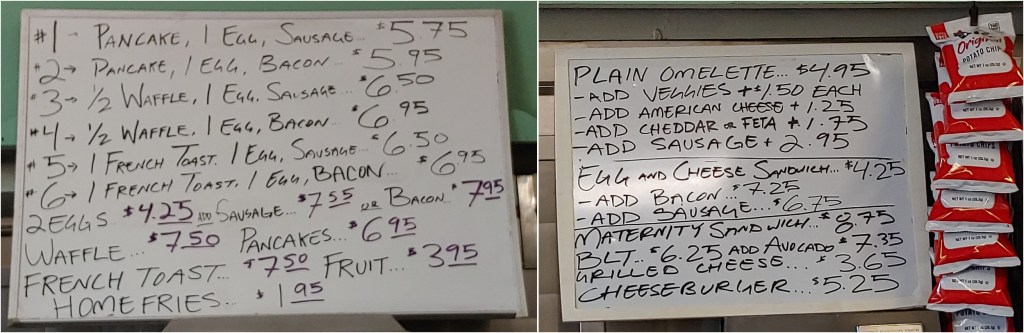 #1- PANCAKE, 1 EGG, SAUSAGE... $5.75
#2→ PANCAKE, 1 EGG, BACON... $5.95
#3→ 1/2 WAFFLE, 1 EGG, SAUSAGE... $6.50
#4→ 1/2 WAFFLE, 1 EGG, BACON... $6.95
#5→ 1 FRENCH TOAST, 1 EGG, SAUSAGE... $6.50
#6→ 1 FRENCH TOAST, 1 EGG, BACON... $6.95
2 EGGS $4.25 ADD SAUSAGE... $7.55 OR BACON $7.95
WAFFLE... $7.50 PANCAKES... $6.95
FRENCH TOAST... $7.50 FRUIT... $3.95
HOMEFRIES... $1.95
PLAIN OMELETTE... $4.95
-ADD VEGGIES +$1.50 EACH
-ADD AMERICAN CHEESE + 1.25
-ADD CHEDDAR OR FETA + 1.75
-ADD SAUSAGE + 2.95
EGG AND CHEESE SANDWICH... $4.25
-ADD BACON... $7.25
-ADD SAUSAGE... $6.75
MATERNITY SANDWICH... $8.75
BLT... $6.25 ADD AVOCADO $7.35
GRILLED CHEESE... $3.65
CHEESEBURGER... $5.25
Original
POTATO CHIPS
NET WT 1 oz (28.3g)